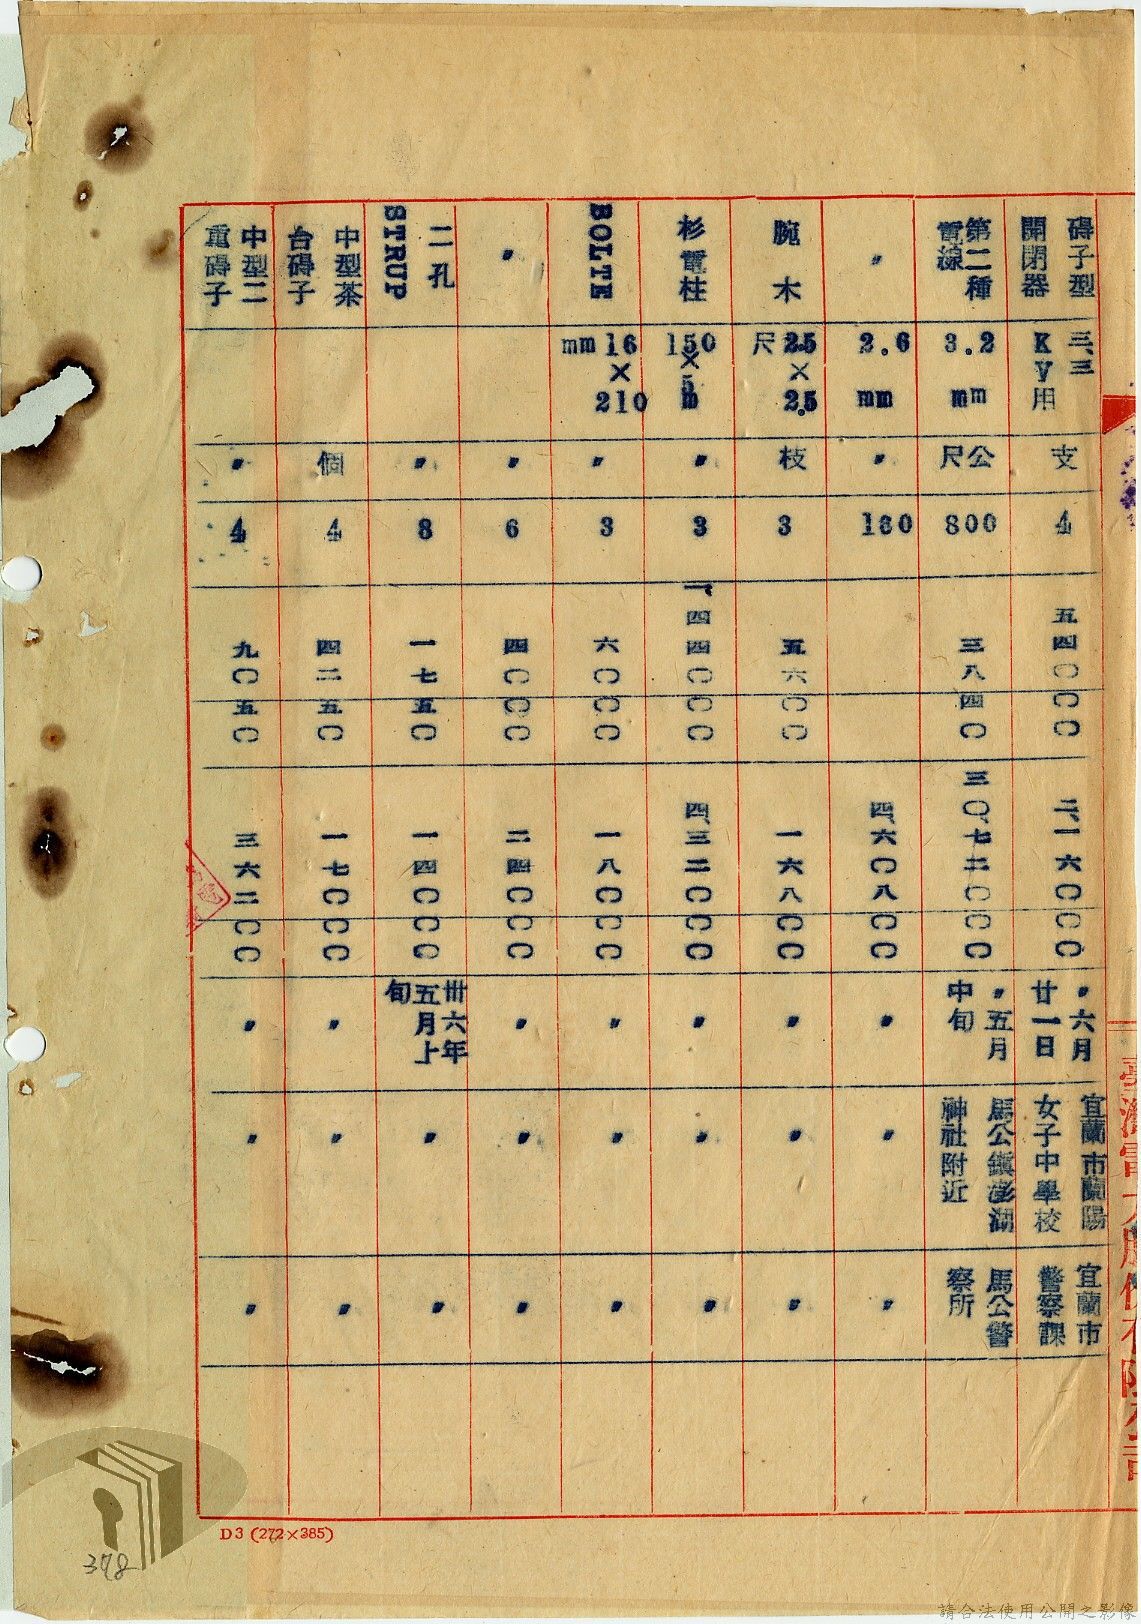 碍子型開閉器 三、三Ky用 支 4 五四〇〇〇 二、一六〇〇〇 〃六月廿一日 宜蘭市蘭陽女子中學校 宜蘭市警察課
第二種電線 3.2 mm 公尺 800 三八四〇 三〇、七二〇〇〇 〃五月中旬 馬公鎮澎湖神社附近 馬公警察所
〃 2.6 mm 〃 160 四、六〇八〇〇 〃 〃 〃
腕木 2.5×2.5尺 枝 3 五六〇〇 一六八〇〇 〃 〃 〃
杉電柱 150×5m 〃 3 一、四四〇〇〇 四、三二〇〇〇 〃 〃 〃
BOLTE 16×210mm 〃 3 六〇〇〇 一八〇〇〇 〃 〃 〃
〃 〃 6 四〇〇〇 二四〇〇〇 〃 〃 〃
二孔STRUP 〃 8 一七五〇 一四〇〇〇 卅六年五月上旬 〃 〃
中型茶台碍子 個 4 四二五〇 一七〇〇〇 〃 〃 〃
中型二重碍子 〃 4 九〇五〇 三六二〇〇 〃 〃 〃
D3 (272×385)
378
請合法使用公開之影像